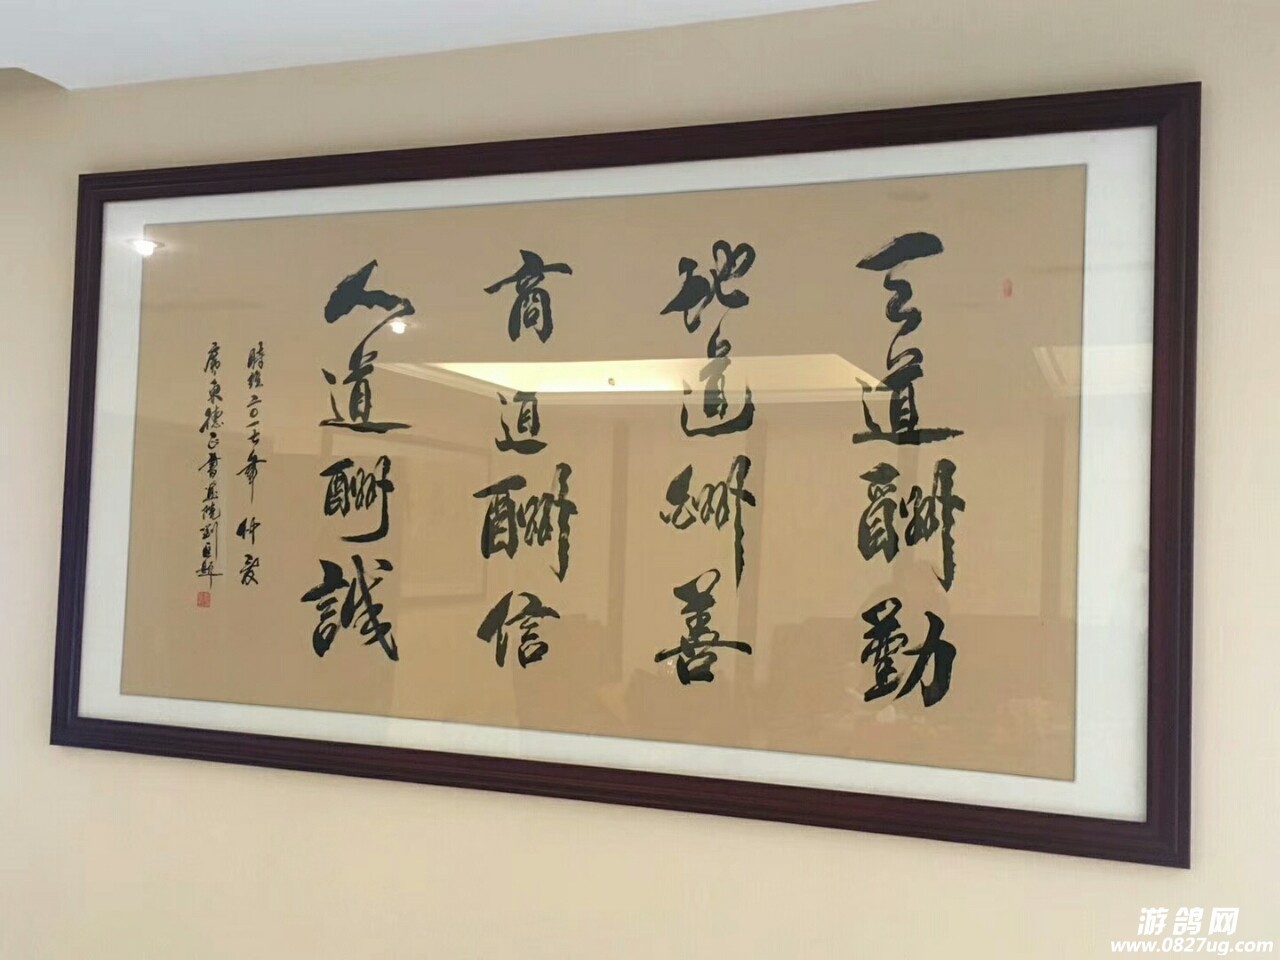 天道酬勤
地道酬善
商道酬信
人道酬誠
時維二0一七年仲夏
廣東德正書画院劉
游鸽网
www.0827ug.com